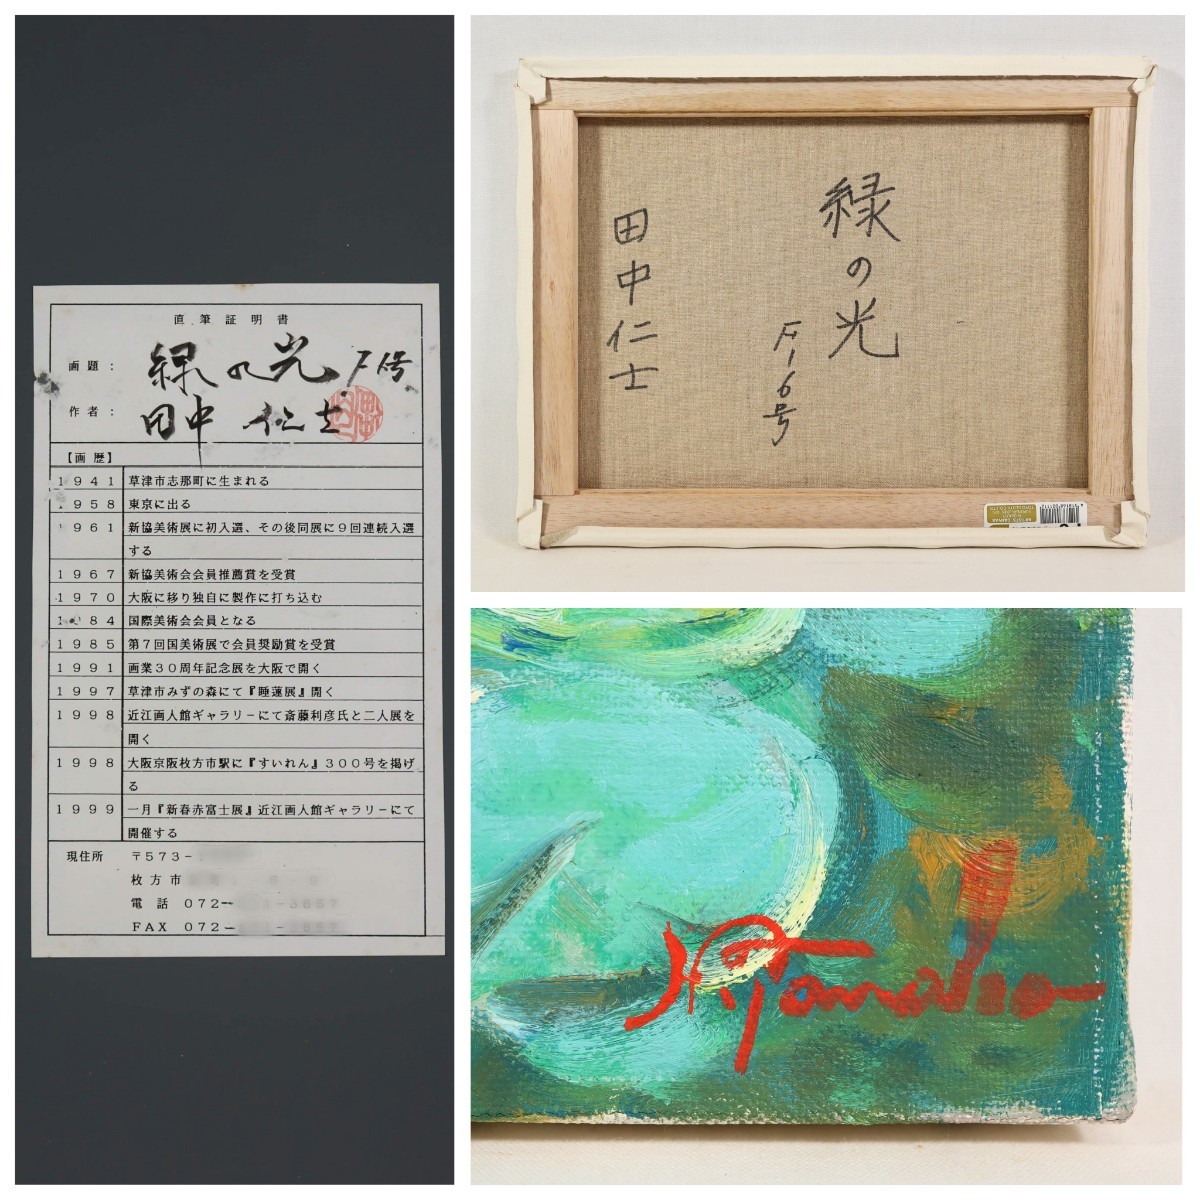 直筆証明書
画題：
緑の光 F6号
作者：
田中 仁士
【画歴】
1941 草津市志那町に生まれる
1958 東京に出る
1961 新協美術展に初入選、その後同展に9回連続入選
する
1967 新協美術会会員推薦賞を受賞
1970 大阪に移り独自に製作に打ち込む
1984 国際美術会会員となる
1985 第7回国美術展で会員奨励賞を受賞
1991 画業30周年記念展を大阪で開く
1997 草津市みずの森にて『睡蓮展』開く
1998 近江画人館ギャラリーにて斎藤利彦氏と二人展を
開く
1998 大阪京阪枚方市駅に『すいれん』300号を掲げ
る
1999 一月『新春赤富士展』近江画人館ギャラリーにて
開催する
現住所 〒573-
枚方市
電話 072-
FAX 072-
緑の光
F-6号
田中仁士
H. Tanaka